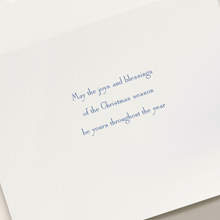 May the joys and blessings
of the Christmas season
be yours throughout the year